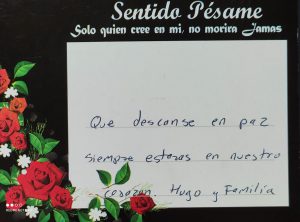 Sentido Pésame
Solo quien cree en mi, no morira Jamas
Que descanse en paz
siempre estaras en nuestro
corazon. Hugo y Familia